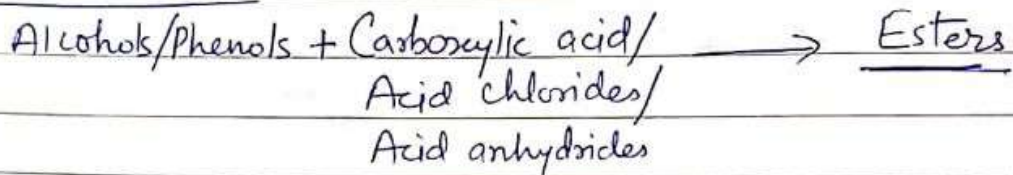 Alcohols/Phenols + Carboxylic acid/ → Esters
Acid chlorides/
Acid anhydrides